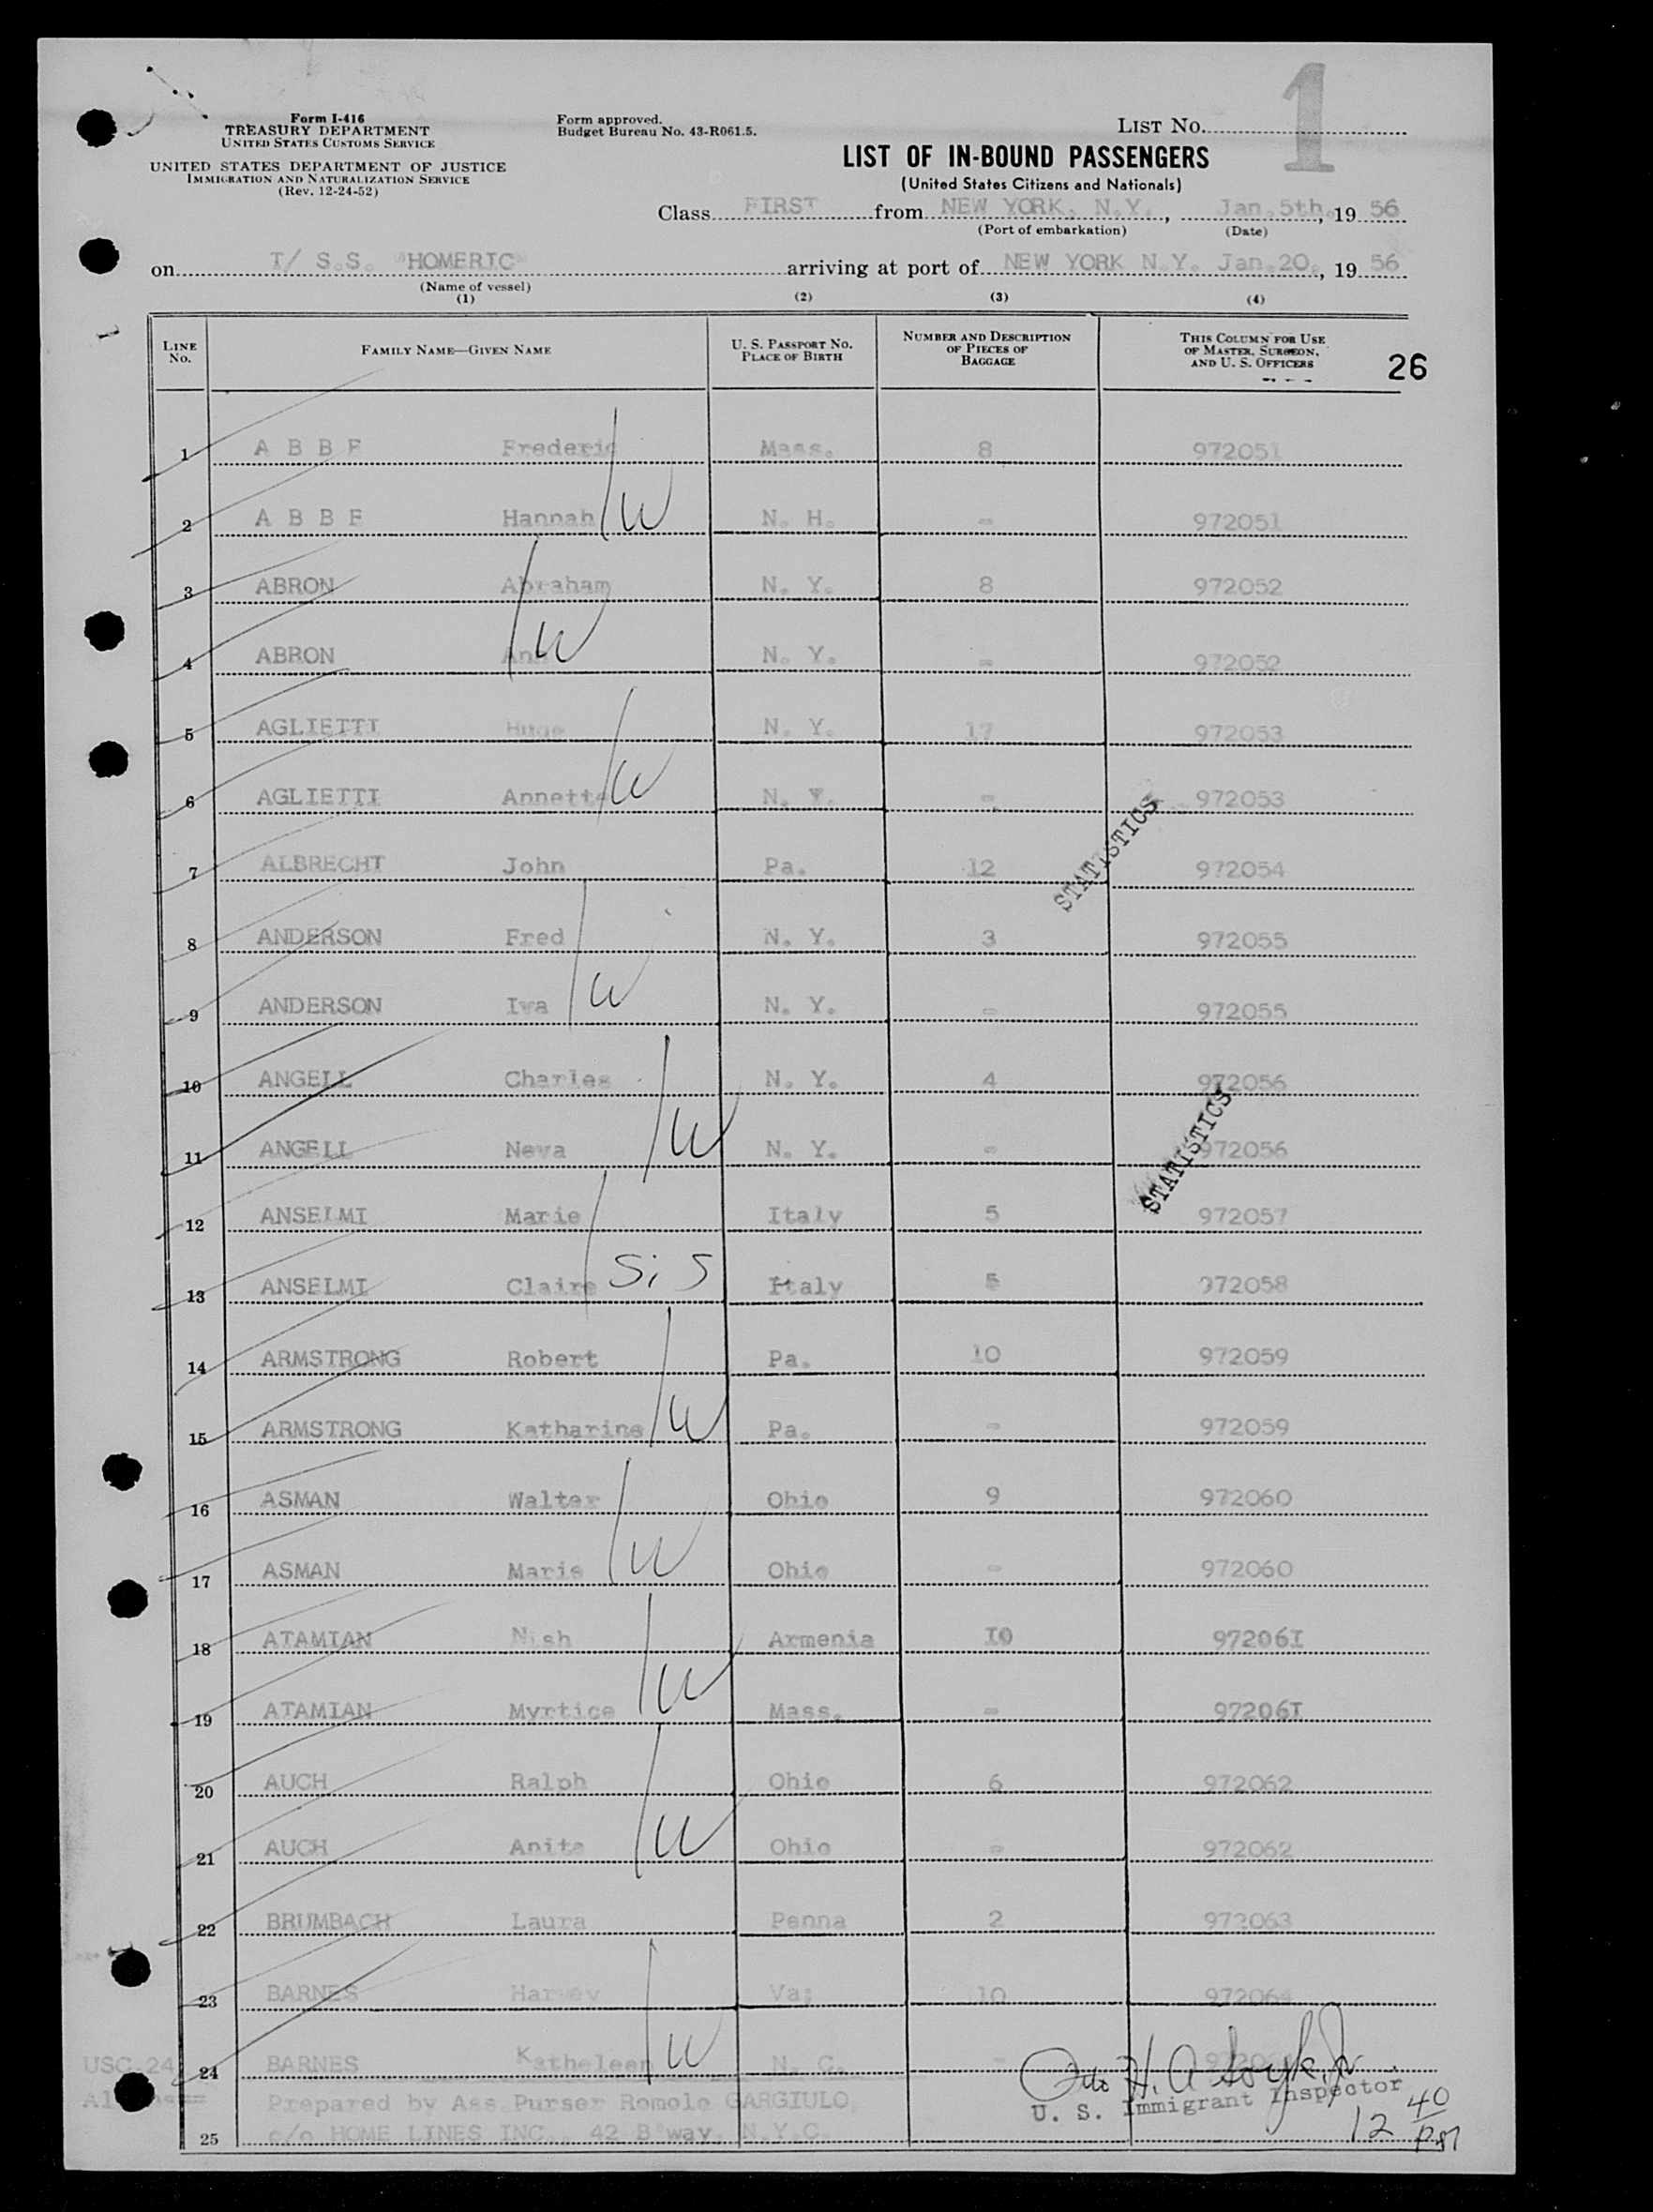 1
Form I-416
TREASURY DEPARTMENT
UNITED STATES CUSTOMS SERVICE
UNITED STATES DEPARTMENT OF JUSTICE
IMMIGRATION AND NATURALIZATION SERVICE
(Rev. 12-24-52)
Form approved.
Budget Bureau No. 43-R061.5.
LIST NO.
LIST OF IN-BOUND PASSENGERS
(United States Citizens and Nationals)
Class FIRST from NEW YORK, N.Y., Jan.5th, 19 56
(Port of embarkation) (Date)
on T/ S.S. "HOMERIC" arriving at port of NEW YORK N.Y. Jan.20, 19 56
(Name of vessel)
(1) (2) (3) (4)
LINE NO. FAMILY NAME—GIVEN NAME U. S. PASSPORT NO. PLACE OF BIRTH NUMBER AND DESCRIPTION OF PIECES OF BAGGAGE THIS COLUMN FOR USE OF MASTER, SURGEON, AND U. S. OFFICERS 26
1 A B B E Frederic Mass. 8 972051
2 A B B E Hannah W N. H. - 972051
3 ABRON Abraham N. Y. 8 972052
4 ABRON W N. Y. - 972052
5 AGLIETTI Hugo N. Y. 17 972053
6 AGLIETTI Annette W N. Y. - 972053
STATISTICS
7 ALBRECHT John Pa. 12 972054
8 ANDERSON Fred N. Y. 3 972055
9 ANDERSON Iva W N. Y. - 972055
10 ANGELL Charles N. Y. 4 972056
11 ANGELL Neva W N. Y. - 972056
STATISTICS
12 ANSELMI Marie Italy 5 972057
13 ANSELMI Claire Sis Italy 5 972058
14 ARMSTRONG Robert Pa. 10 972059
15 ARMSTRONG Katharine W Pa. - 972059
16 ASMAN Walter Ohio 9 972060
17 ASMAN Marie W Ohio - 972060
18 ATAMIAN Nish Armenia I0 97206I
19 ATAMIAN Myrtice W Mass. - 97206I
20 AUCH Ralph Ohio 6 972062
21 AUCH Anita W Ohio - 972062
22 BRUMBACH Laura Penna 2 972063
23 BARNES Harvey Va; 10 972064
USC-24
24 BARNES Katheleen W N. C. -
Prepared by Ass.Purser Romolo GARGIULO,
U. S. Immigrant Inspector
25 c/o HOME LINES INC., 42 B'way, N.Y.C.
12 40 PM